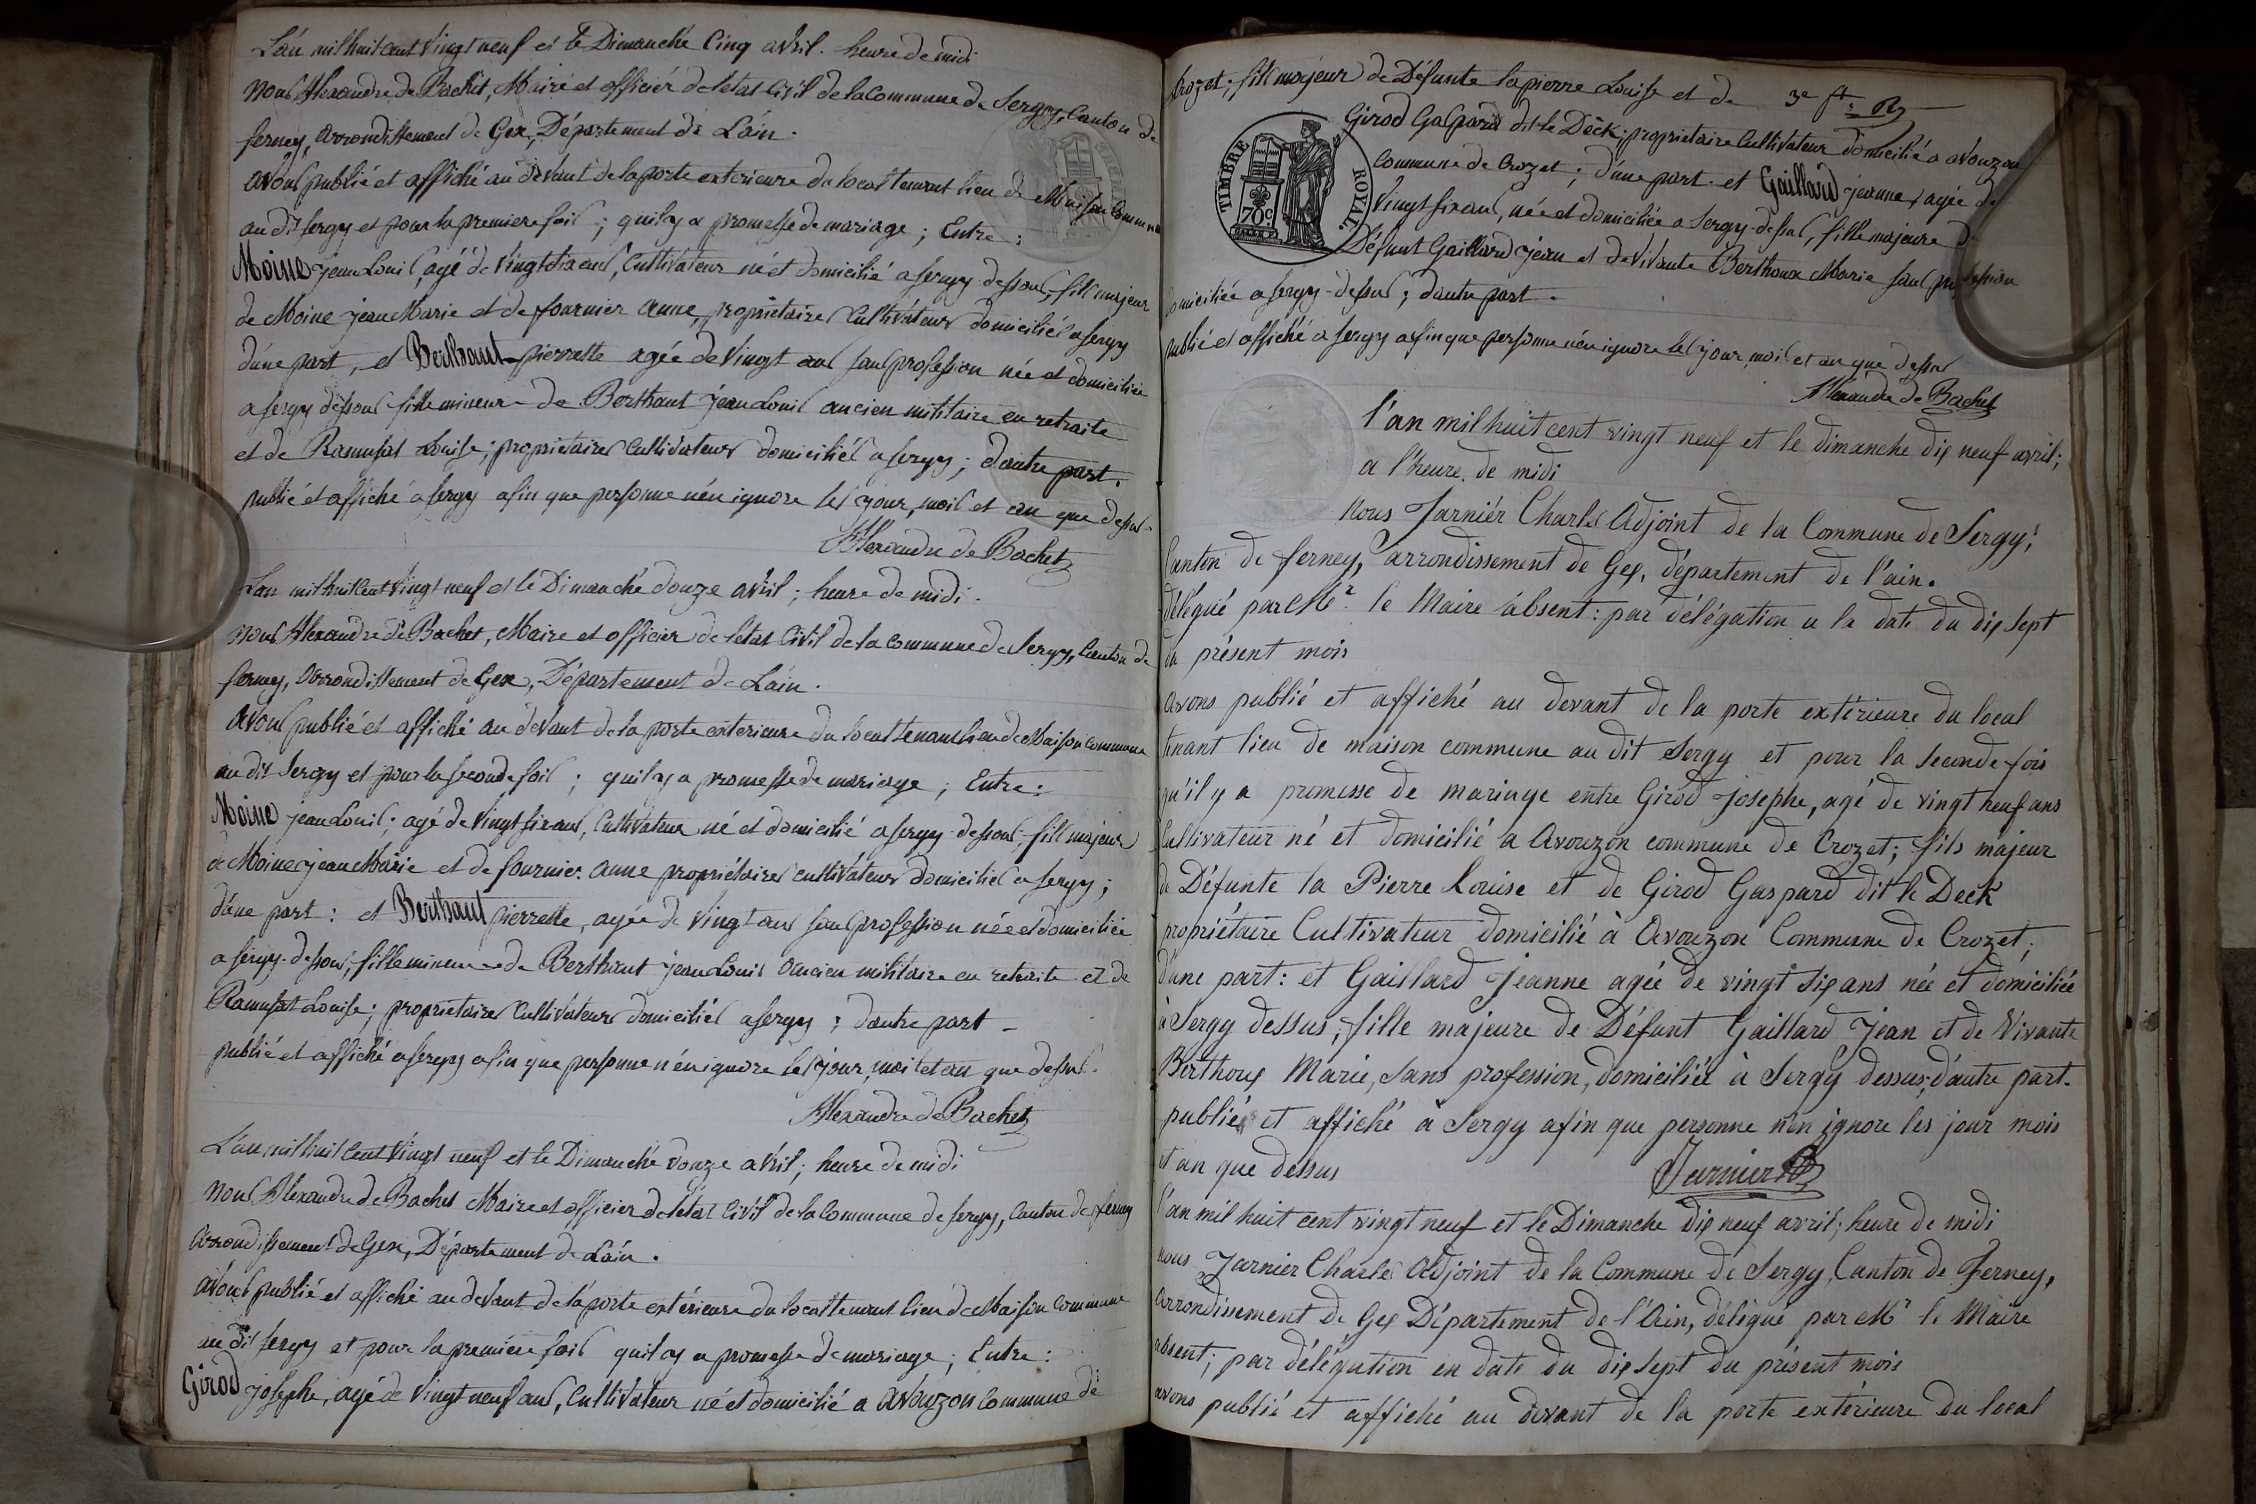 L'an mil huit cent vingt neuf et le Dimanche Cinq avril. heure de midi
Nous Alexandre de Bachet, Maire et officier de l'etat Civil de la Commune de Sergy, Canton de
ferney, arrondissement de Gex, Département de L'ain.
avons publié et affiché au devant de la porte exterieure du local tenant lieu de Maison Commune
au dit Sergy et pour la premiere fois ; qu'il y a promesse de mariage ; Entre :
Moine jean Louis, agé de Vingt six ans, Cultivateur né et domicilié a sergy dessous, fils majeur
de Moine jean Marie et de fournier anne, propriétaires Cultivateurs domiciliés a sergy
d'une part, et Berthaut pierrette agée de Vingt ans sans profession née et domiciliée
a sergy dessous fille mineure de Berthaut jean Louis ancien militaire en retraite
et de Ramusat Louise ; propriétaires Cultivateurs domiciliés a sergy ; d'autre part.
publié et affiché a sergy afin que personne n'en ignore les jour, mois et an que dessus.
Alexandre de Bachet
L'an mil huit cent Vingt neuf et le Dimanche douze avril ; heure de midi.
Nous Alexandre de Bachet, Maire et officier de l'etat Civil de la commune de Sergy, Canton de
ferney, arrondissement de Gex, Département de L'ain.
avons publié et affiché au devant de la porte exterieure du local tenant lieu de Maison Commune
au dit Sergy et pour la seconde fois ; qu'il y a promesse de mariage ; Entre :
Moine jean Louis ; agé de Vingt six ans, Cultivateur né et domicilié a sergy dessous, fils majeur
de Moine jean Marie et de fournier anne propriétaires cultivateurs domiciliés a sergy ;
d'une part : et Berthaut pierrette, agée de Vingt ans sans profession née et domiciliée
a sergy-dessous, fille mineure de Berthaut jean Louis ancien militaire en retraite et de
Ramusat Louise ; propriétaires Cultivateurs domiciliés a sergy ; d'autre part -
publié et affiché a sergy afin que personne n'en ignore les jour, mois et an que dessus.
Alexandre de Bachet
L'an mil huit cent Vingt neuf et le Dimanche douze avril ; heure de midi
Nous Alexandre de Bachet Maire et officier de l'état Civil de la Commune de sergy, Canton de ferney
arrondissement de Gex, Département de L'ain.
avons publié et affiché au devant de la porte extérieure du local tenant lieu de Maison Commune
au dit sergy et pour la première fois qu'il y a promesse de mariage ; Entre :
Girod josephe, agé de Vingt neuf ans, Cultivateur né et domicilié a avouzon Commune de
Crozet ; fils majeur de Défunte la pierre Louise et de 3e ft
Girod Gaspard dit le Dèck ; propriétaire Cultivateur domicilié a avouzon
TIMBRE ROYAL
70c
Commune de Crozet ; d'une part. et Gaillard jeanne, agée de
Vingt six ans, née et domiciliée a Sergy-dessus, fille majeure de
Défunt Gaillard jean et de Vivante Berthoux Marie sans profession
domiciliée a sergy-dessus ; d'autre part.
publié et affiché a sergy afin que personne n'en ignore les jour, mois et an que dessus
Alexandre de Bachet
l'an mil huit cent vingt neuf et le dimanche dix neuf avril ;
a l'heure de midi
Nous Jarnier Charles Adjoint de la Commune de Sergy,
Canton de ferney, arrondissement de Gex, département de l'ain.
délégué par Mr. le Maire absent : par délégation a la date du dix sept
du présent mois
avons publié et affiché au devant de la porte extérieure du local
tenant lieu de maison commune au dit Sergy et pour la seconde fois
qu'il y a promesse de mariage entre Girod Josephe, agé de vingt neuf ans
Cultivateur né et domicilié a Avouzon commune de Crozet ; fils majeur
de Défunte la Pierre Louise et de Girod Gaspard dit le Deck
propriétaire Cultivateur domicilié à Avouzon Commune de Crozet ;
d'une part : et Gaillard Jeanne agée de vingt six ans née et domiciliée
à Sergy dessus, fille majeure de Défunt Gaillard Jean et de Vivante
Berthoux Marie, Sans profession, domiciliée à Sergy dessus ; d'autre part.
publié et affiché à Sergy afin que personne n'en ignore les jour mois
et an que dessus
Jarnier
l'an mil huit cent vingt neuf et le Dimanche dix neuf avril ; heure de midi
nous Jarnier Charles Adjoint de la Commune de Sergy, Canton de Ferney,
arrondissement de Gex Département de l'Ain, délégué par Mr le Maire
absent ; par délégation en date du dix sept du présent mois
avons publié et affiché au devant de la porte extérieure du local